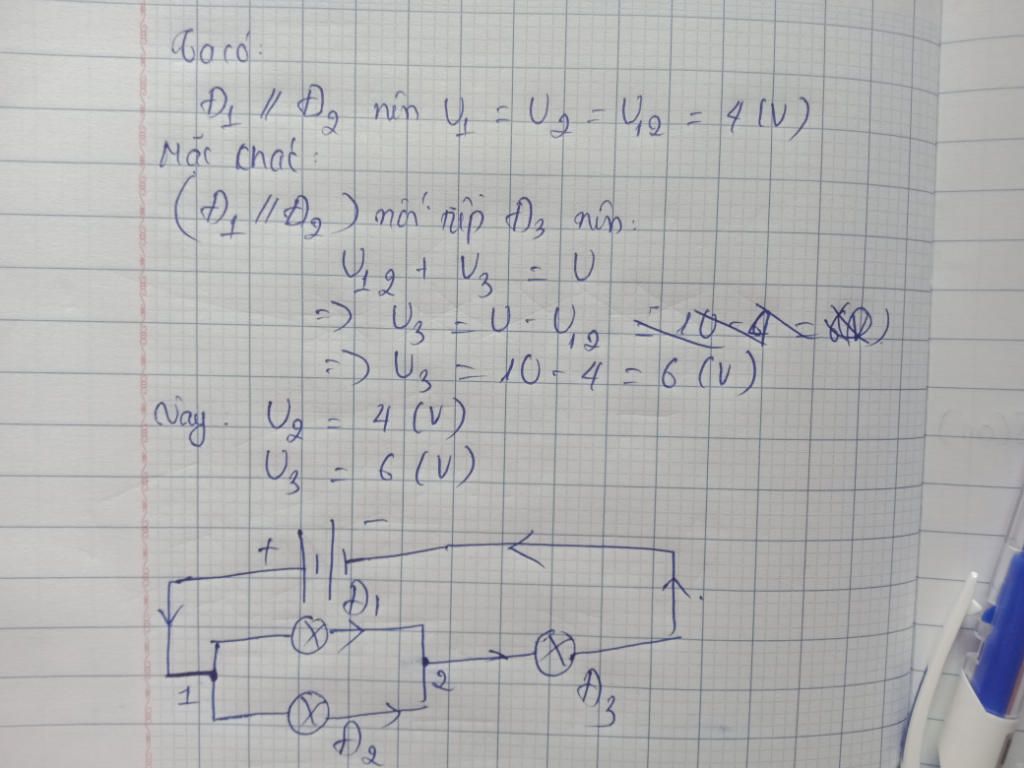 Ta có:
Đ1 // Đ2 nên U1 = U2 = U12 = 4 (V)
Mặc khác:
(Đ1 // Đ2) nối tiếp Đ3 nên:
U12 + U3 = U
=> U3 = U - U12
=> U3 = 10 - 4 = 6 (V)
Vậy: U2 = 4 (V)
U3 = 6 (V)
+ -
Đ1
1 2
Đ3
Đ2